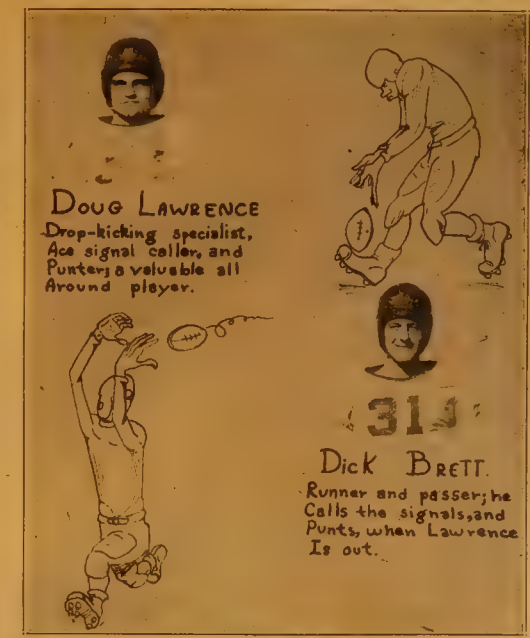 DOUG LAWRENCE
Drop-kicking specialist,
Ace signal caller, and
Punter; a valuable all
Around player.
31
DICK BRETT.
Runner and passer; he
Calls the signals, and
Punts, when Lawrence
Is out.